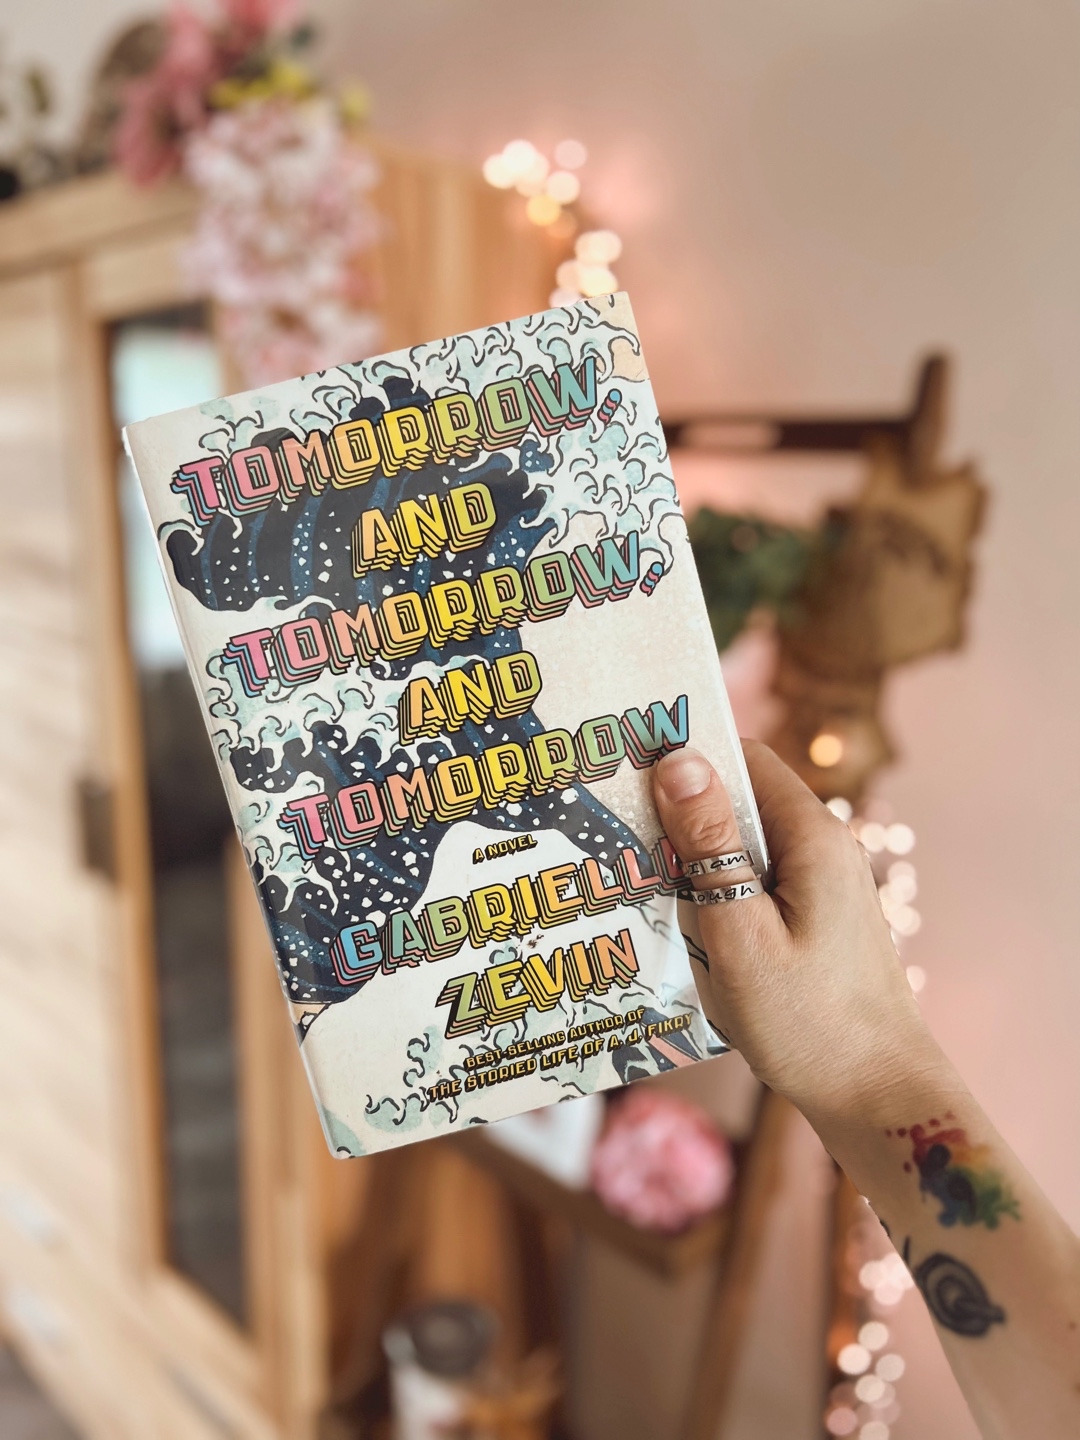 TOMORROW,
AND
TOMORROW,
AND
TOMORROW
A NOVEL
GABRIELLE
ZEVIN
BEST-SELLING AUTHOR OF
THE STORIED LIFE OF A. J. FIKRY
I am